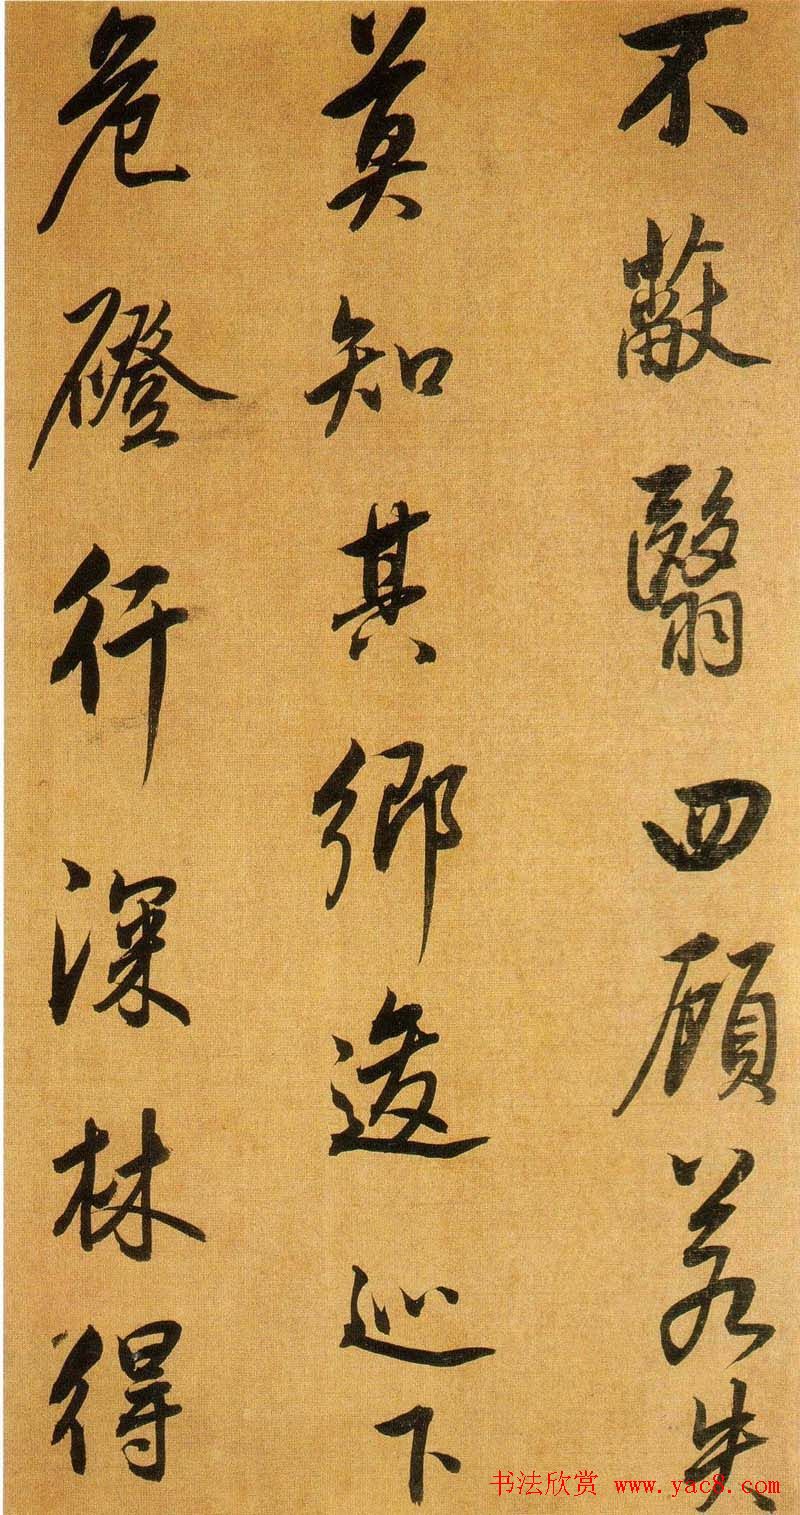 不蔽翳四顾若失
莫知其鄉逡巡下
危磴行深林得
书法欣赏 www.yac8.com